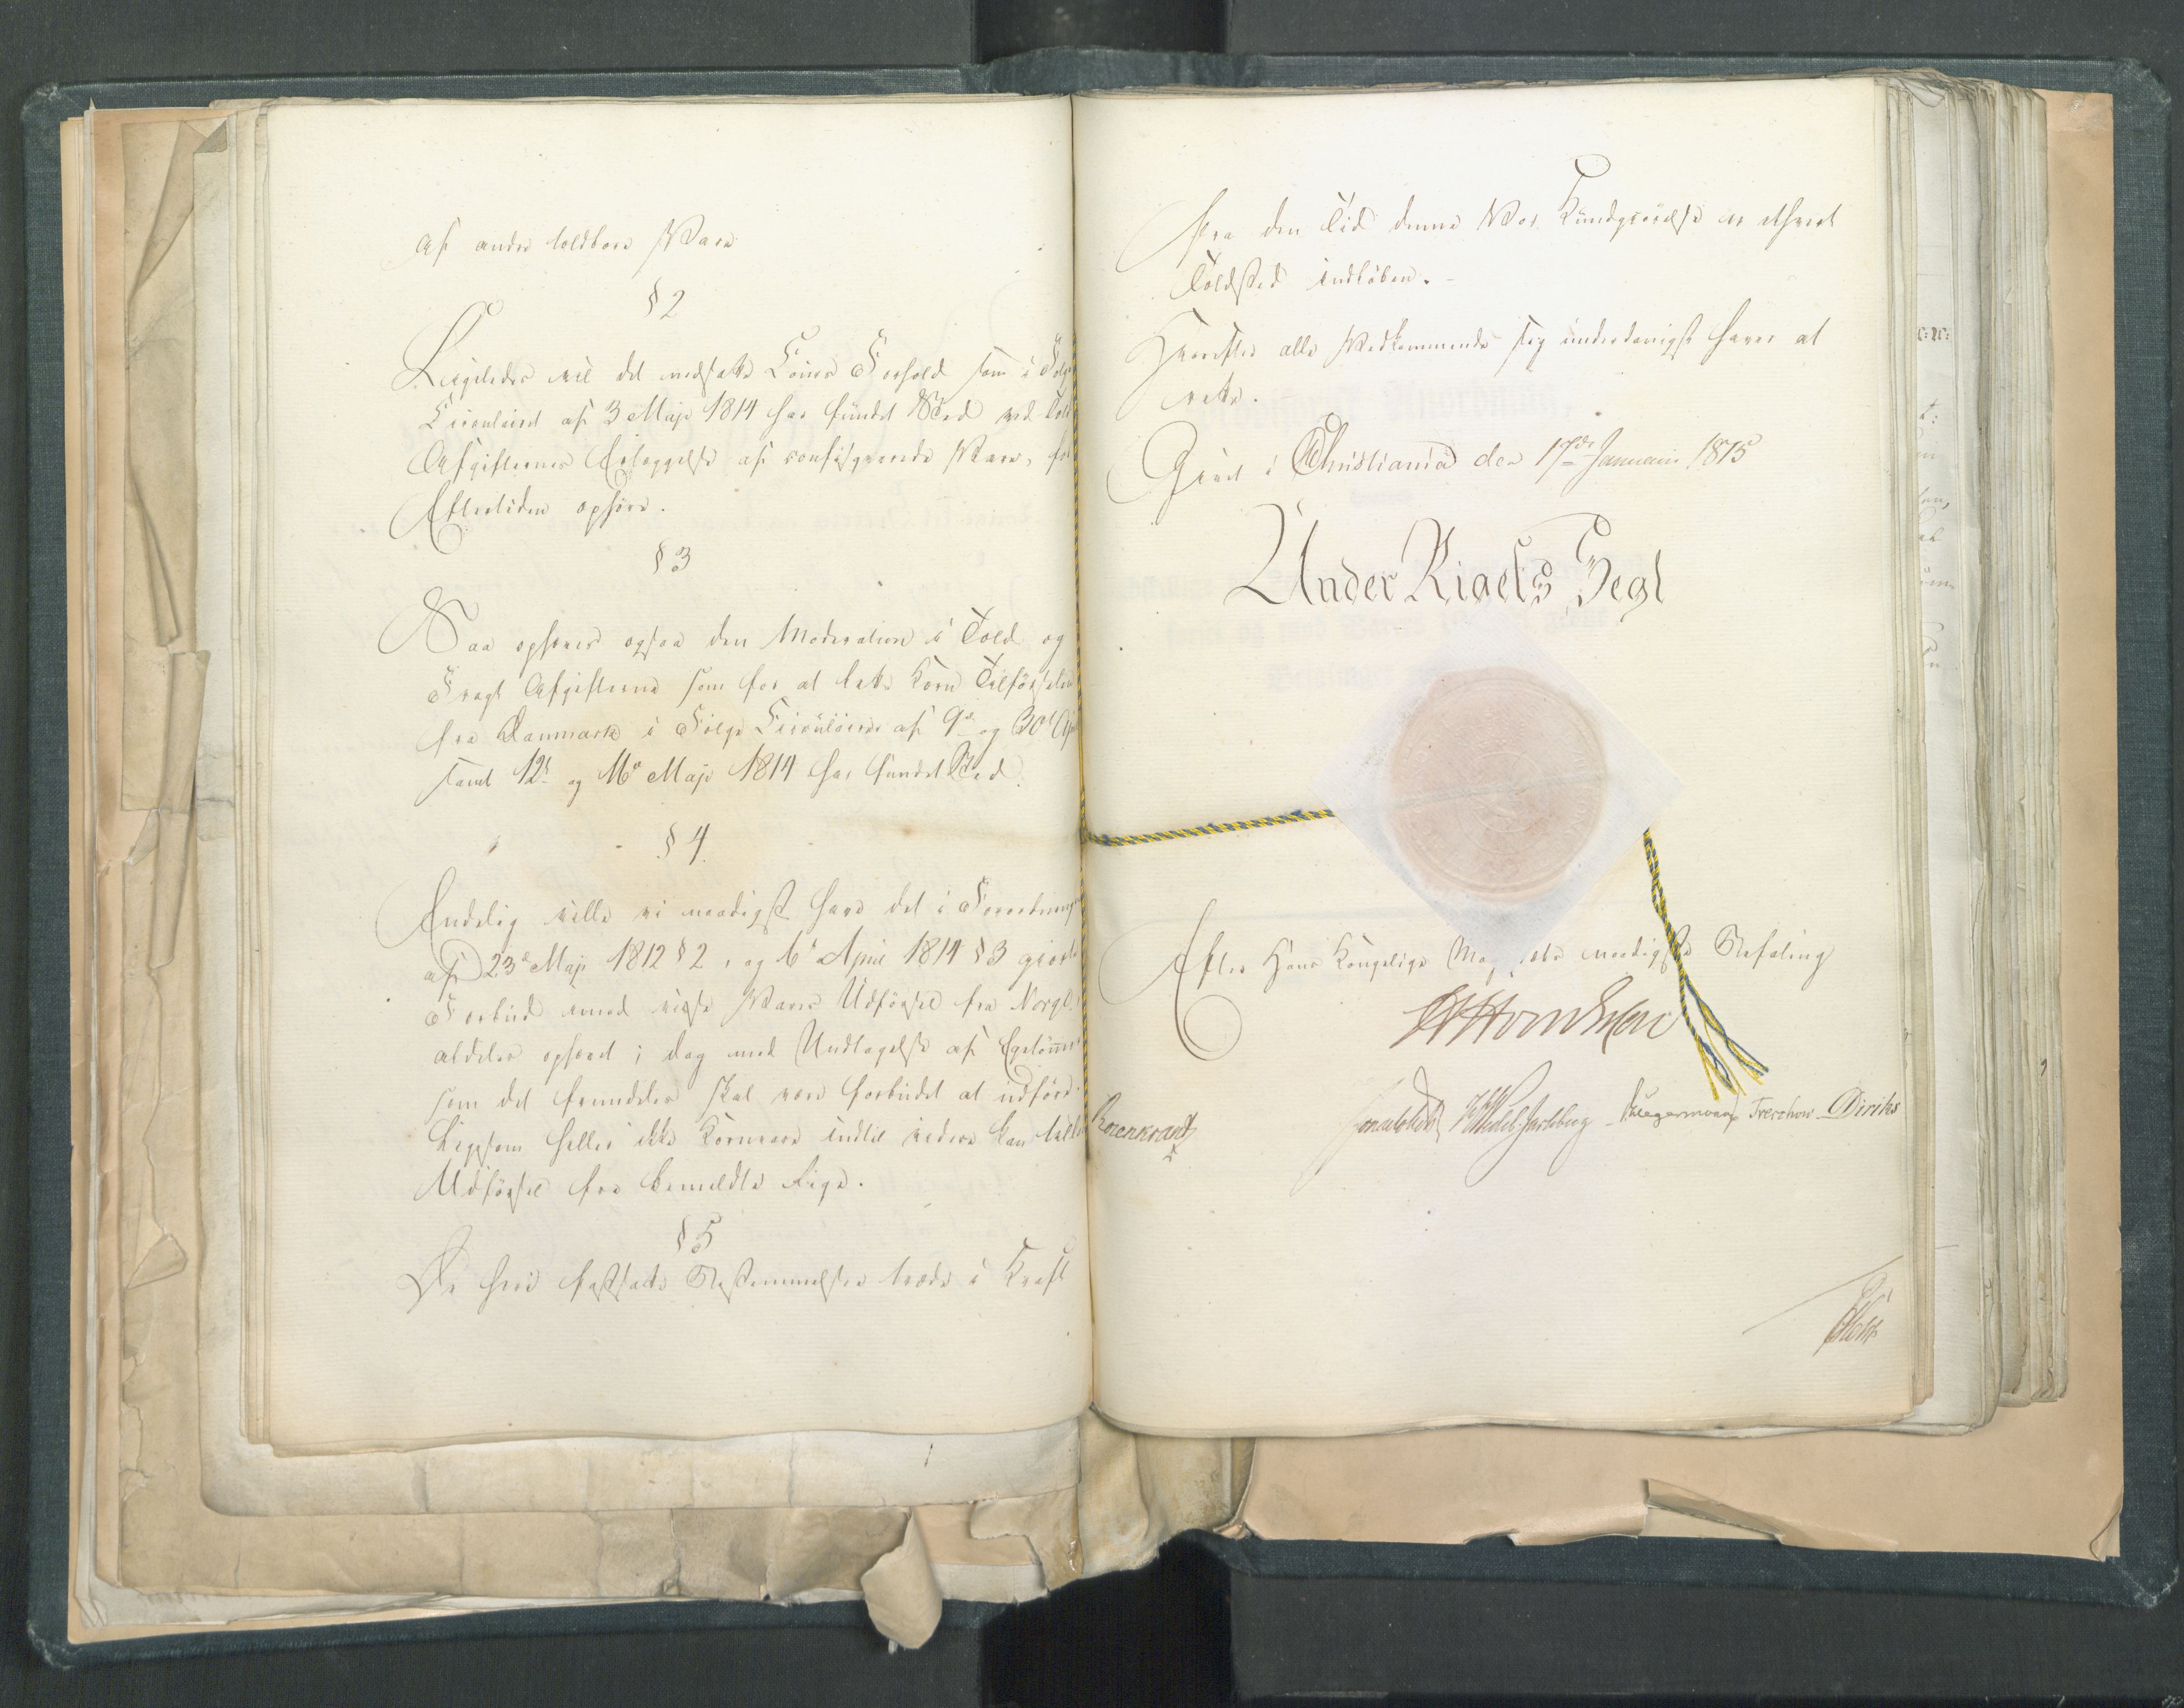 af andre toldbare Vare
§ 2
Ligeledes vil det nedsatte Cours Forhold som i Følge
Circulairet af 3 Maji 1814 har fundet Sted ved Told
Afgifternes Erlæggelse af consignerede Vare, for
Eftertiden ophøre.
§ 3
Saa ophører ogsaa den Moderation i Told og
Fragt Afgifterne som for at lette Korn Tilførselen
fra Danmark i Følge Circulairer af 9de og 30te Apr
samt 12te og 16de Maji 1814 har fundet Sted.
§ 4.
Endelig ville vi naadigst have det i Forordningen
af 23de Maji 1812 § 2, og 6te April 1814 § 3 giorte
Forbud imod visse Varers Udførsel fra Norge
aldeles ophævet; dog med Undtagelse af Egetømmer
som det fremdeles skal være forbudet at udføre
Ligesom heller ikke Kornvare indtil videre kan tillades
Udførsel fra bemeldte Rige.
§ 5
De heri fastsatte Bestemmelser træde i Kraft
fra den Tid denne Vor Kundgiørelse er ethvert
Toldsted indløben.-
Hvorefter alle Vedkommende sig underdanigst haver at
rette.
Givet i Christiania den 17de Januarii 1815
Under Rigets Segl
Efter Hans Kongelige Majestæts naadigste Befaling
Rosenkrantz Sommerhielm Wedel Jarlsberg - Krieger Treschow - Diriks